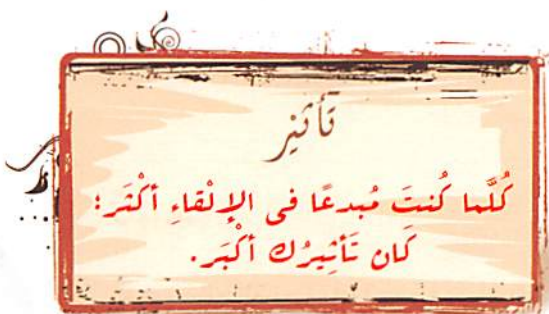 تَأثير
كُلَّما كُنتَ مُبدعًا فى الإلْقاءِ أكْثَر؛
كَان تَأثِيرُك أكْبَر.